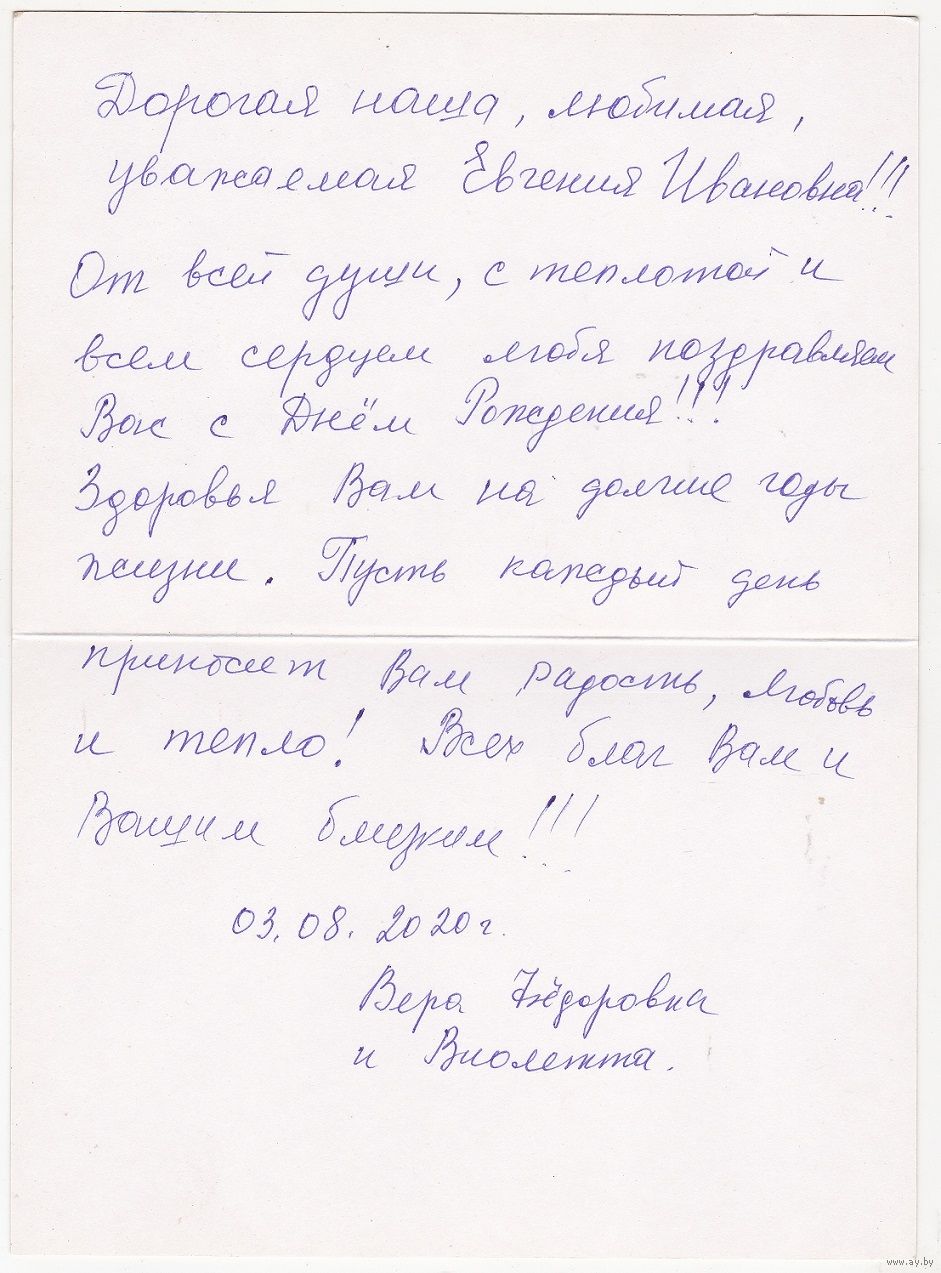 Дорогая наша, любимая,
уважаемая Евгения Ивановна!!!
От всей души, с теплотой и
всем сердцем любя поздравляем
Вас с Днём Рождения!!!
Здоровья Вам на долгие годы
жизни. Пусть каждый день
приносит Вам радость, любовь
и тепло! Всех благ Вам и
Вашим близким!!!
03.08.2020г.
Вера Фёдоровна
и Виолетта.
www.ay.by